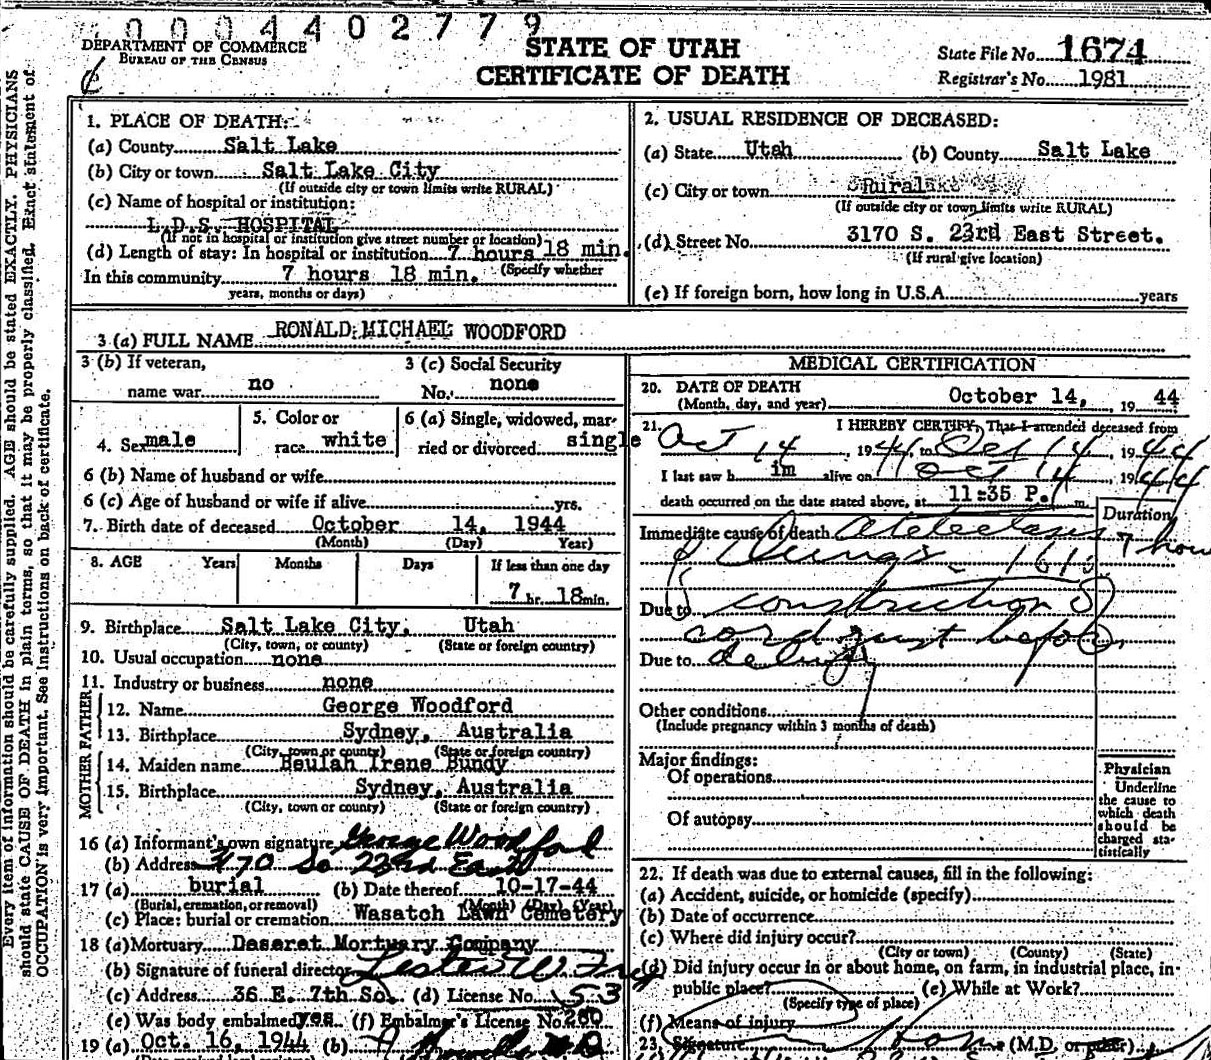 0004402779
DEPARTMENT OF COMMERCE
BUREAU OF THE CENSUS
STATE OF UTAH
CERTIFICATE OF DEATH
State File No. 1674
Registrar's No. 1981
Every item of information should be carefully supplied. AGE should be stated EXACTLY. PHYSICIANS
should state CAUSE OF DEATH in plain terms, so that it may be properly classified. Exact statement of
OCCUPATION is very important. See instructions on back of certificate.
1. PLACE OF DEATH:
(a) County Salt Lake
(b) City or town Salt Lake City
(If outside city or town limits write RURAL)
(c) Name of hospital or institution:
L.D.S. HOSPITAL
(If not in hospital or institution give street number or location)
(d) Length of stay: In hospital or institution 7 hours 18 min.
(Specify whether
In this community 7 hours 18 min.
years, months or days)
2. USUAL RESIDENCE OF DECEASED:
(a) State Utah (b) County Salt Lake
(c) City or town Rural
(If outside city or town limits write RURAL)
(d) Street No. 3170 S. 23rd East Street.
(If rural give location)
(e) If foreign born, how long in U.S.A. years
3 (a) FULL NAME RONALD MICHAEL WOODFORD
3 (b) If veteran,
name war no
3 (c) Social Security
No. none
4. Sex male
5. Color or
race white
6 (a) Single, widowed, mar-
ried or divorced single
6 (b) Name of husband or wife
6 (c) Age of husband or wife if alive yrs.
7. Birth date of deceased October 14, 1944
(Month) (Day) Year)
8. AGE Years Months Days If less than one day
7 hr. 18 min.
9. Birthplace Salt Lake City, Utah
(City, town, or county) (State or foreign country)
10. Usual occupation none
11. Industry or business none
FATHER
12. Name George Woodford
13. Birthplace Sydney, Australia
(City, town or county) (State or foreign country)
MOTHER
14. Maiden name Beulah Irene Bundy
15. Birthplace Sydney, Australia
(City, town or county) (State or foreign country)
16 (a) Informant's own signature George Woodford
(b) Address 3170 So 23rd East
17 (a) burial (b) Date thereof 10-17-44
(Burial, cremation, or removal) (Month) (Day) (Year)
(c) Place: burial or cremation Wasatch Lawn Cemetery
18 (a) Mortuary Deseret Mortuary Company
(b) Signature of funeral director Lester W
(c) Address 36 E. 7th So. (d) License No. 53
(e) Was body embalmed yes (f) Embalmer's License No. 260
19 (a) Oct. 16, 1944 (b)
MEDICAL CERTIFICATION
20. DATE OF DEATH
(Month, day, and year) October 14, 19 44
21. I HEREBY CERTIFY, That I attended deceased from
Oct 14, 1944, to Oct 14, 1944
I last saw h im alive on Oct 14, 1944
death occurred on the date stated above, at 11:35 P. m.
Duration
Immediate cause of death Atelectasis 7 hours
of lungs
Due to constriction of
cord just before
Due to delivery
Other conditions
(Include pregnancy within 3 months of death)
Major findings:
Of operations
Of autopsy
Physician
Underline
the cause to
which death
should be
charged sta-
tistically
22. If death was due to external causes, fill in the following:
(a) Accident, suicide, or homicide (specify)
(b) Date of occurrence
(c) Where did injury occur?
(City or town) (County) (State)
(d) Did injury occur in or about home, on farm, in industrial place, in
public place? (e) While at Work?
(Specify type of place)
(f) Means of injury
23. Signature (M.D. or other)